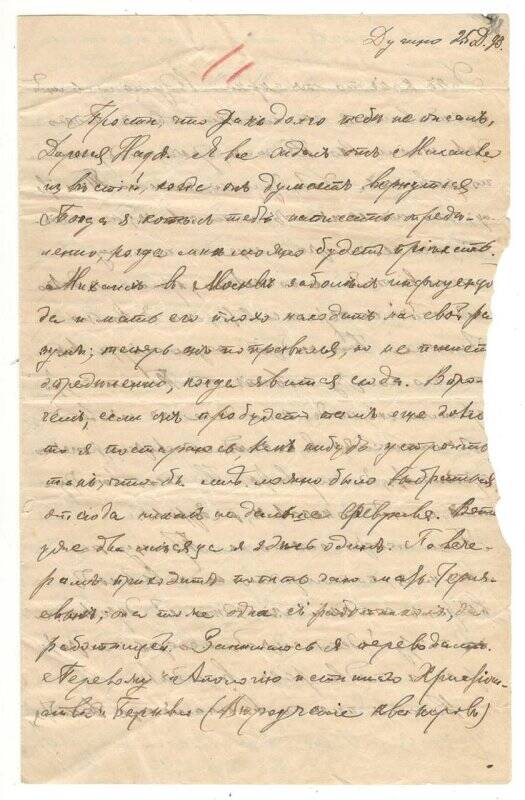 Дугино 25 Д. 93.
Прости, что такъ долго тебѣ не писалъ,
Дорогая Надя. Я все ждалъ отъ Михаила
извѣстій, когда онъ думаетъ вернуться
Тогда я хотѣлъ тебѣ написать опредѣ-
ленно, когда мнѣ можно будетъ пріѣхать.
Михаилъ въ Москвѣ заболѣлъ инфлуенцо
да и мать его плохо находитъ на свой ра
зумъ; теперь онъ поправился, но не пишет
опредѣленно, когда явится сюда. Впро-
чемъ, если онъ пробудетъ тамъ еще долго
то я постараюсь какъ нибудь устроить
такъ, чтобы мнѣ можно было выбраться
отсюда никакъ не дальше февраля. Вотъ
уже два мѣсяца я здѣсь одинъ. По вече-
рамъ приходитъ попить чаю
она тоже одна съ работникомъ, да
работницей. Занимаюсь я переводами.
Перевожу Апологію истиннаго Христіан-
ства (Вѣроученіе квакеровъ)